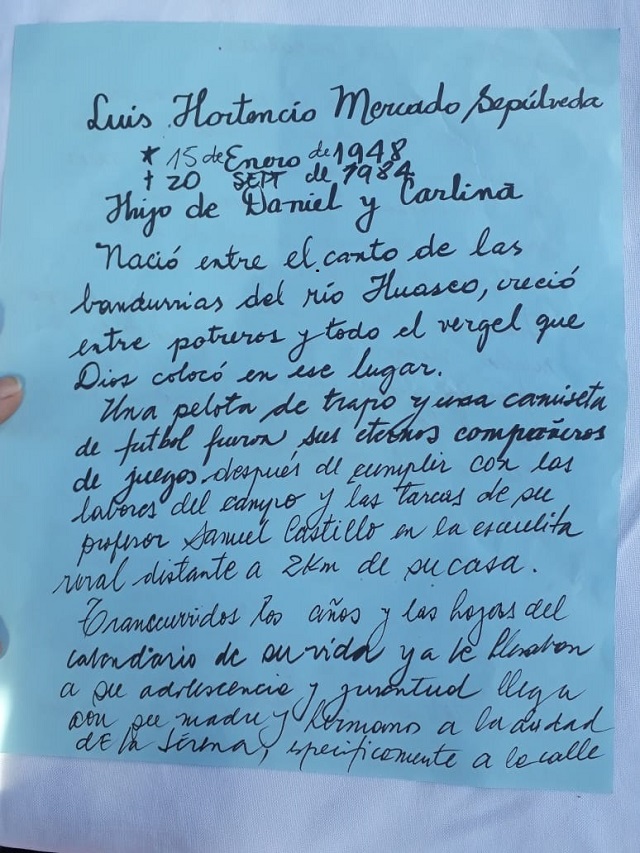 Luis Hortencio Mercado Sepúlveda
* 15 de Enero de 1948
† 20 SEPT de 1984
Hijo de Daniel y Carlina
Nació entre el canto de las
bandurrias del río Huasco, creció
entre potreros y todo el vergel que
Dios colocó en ese lugar.
Una pelota de trapo y una camiseta
de futbol fueron sus eternos compañeros
de juegos después de cumplir con las
labores del campo y las tareas de su
profesor Samuel Castillo en la escuelita
rural distante a 2Km de su casa.
Trancurridos los años y las hojas del
calendario de su vida ya le llevaban
a su adolescencia y juventud llega
con su madre y hermanos a la ciudad
de la Serena, específicamente a la calle